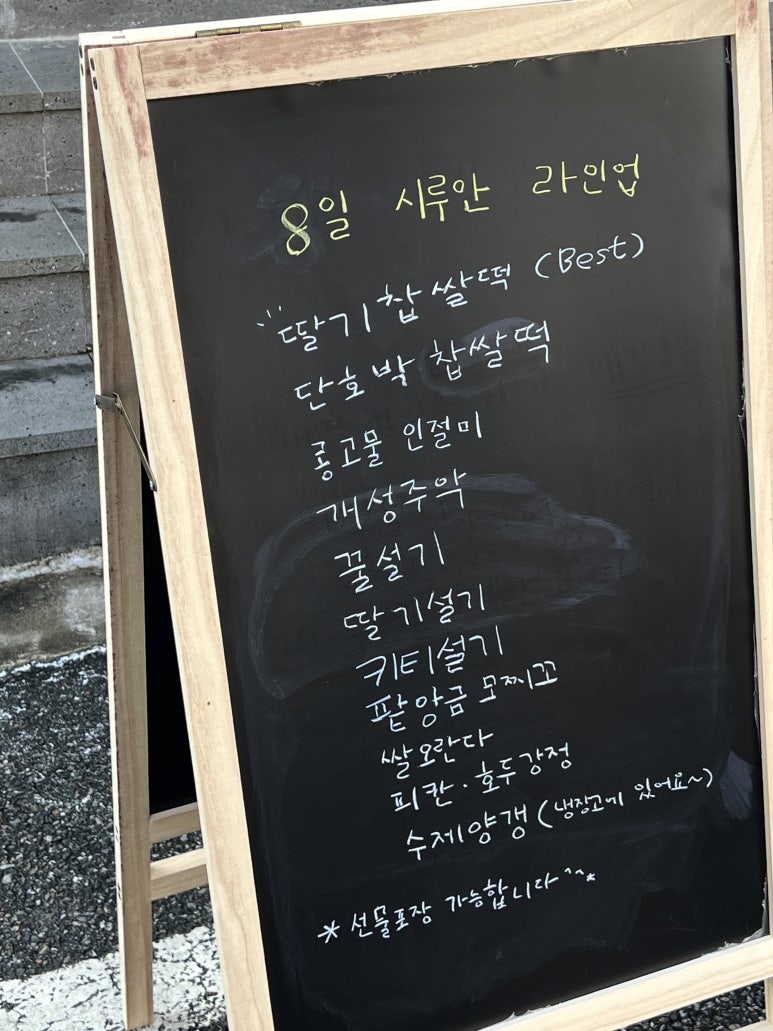 8일 시루안 라인업
딸기찹쌀떡 (Best)
단호박 찹쌀떡
콩고물 인절미
개성주악
꿀설기
딸기설기
키티설기
팥앙금 모찌꼬
쌀오란다
피칸·호두강정
수제양갱 (냉장고에 있어요~)
* 선물포장 가능합니다^^*